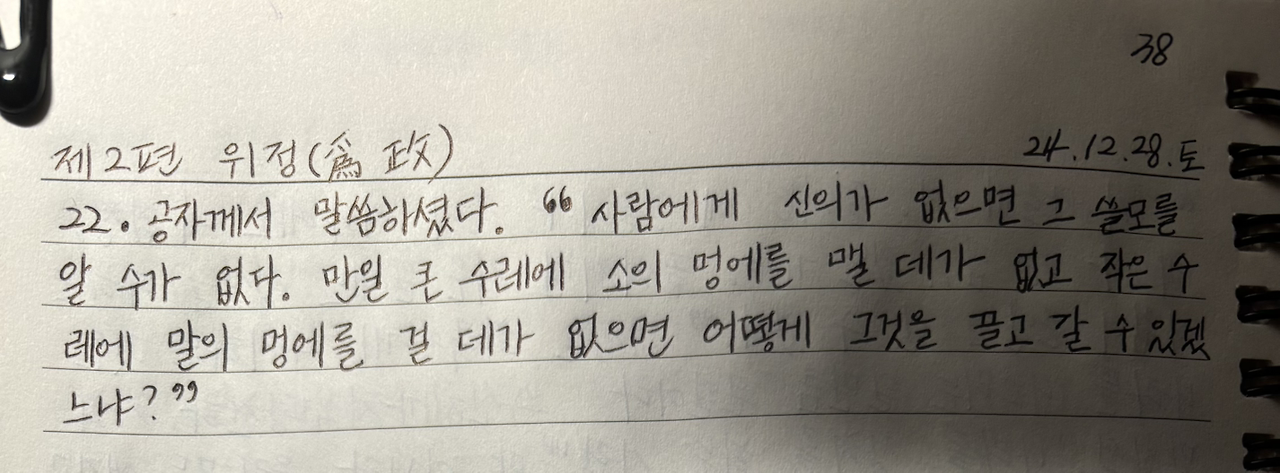 38
제2편 위정(爲政) 24.12.28.토
22. 공자께서 말씀하셨다. “사람에게 신의가 없으면 그 쓸모를
알 수가 없다. 만일 큰 수레에 소의 멍에를 맬 데가 없고 작은 수
레에 말의 멍에를 걸 데가 없으면 어떻게 그것을 끌고 갈 수 있겠
느냐?”